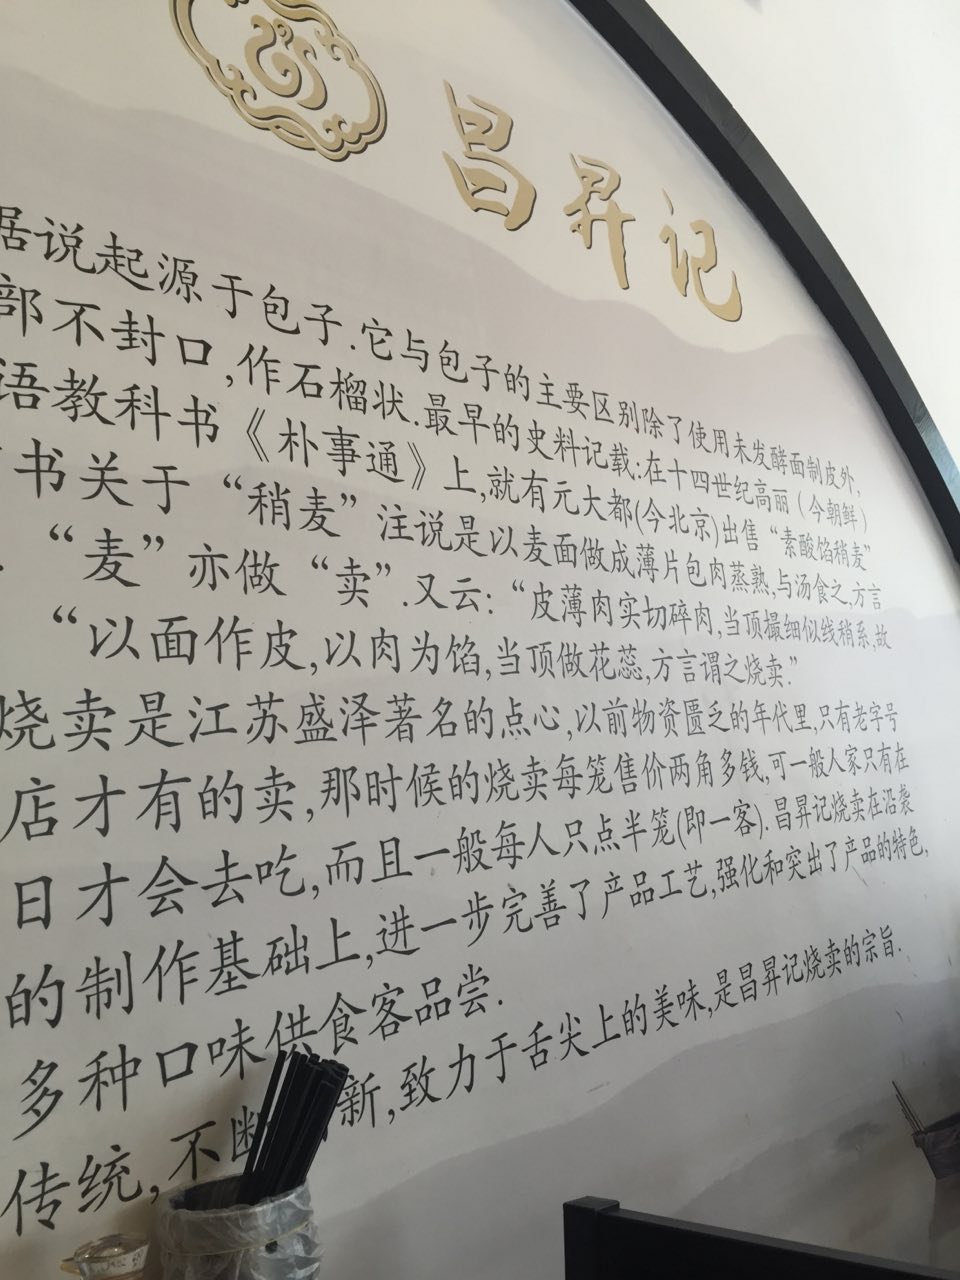 昌昇记
据说起源于包子.它与包子的主要区别除了使用未发酵面制皮外,
部不封口,作石榴状.最早的史料记载:在十四世纪高丽(今朝鲜)
语教科书《朴事通》上,就有元大都(今北京)出售“素酸馅稍麦”
书关于“稍麦”注说是以麦面做成薄片包肉蒸熟,与汤食之,方言
“麦”亦做“卖”.又云:“皮薄肉实切碎肉,当顶撮细似线稍系,故
“以面作皮,以肉为馅,当顶做花蕊,方言谓之烧卖.”
烧卖是江苏盛泽著名的点心,以前物资匮乏的年代里,只有老字号
店才有的卖,那时候的烧卖每笼售价两角多钱,可一般人家只有在
日才会去吃,而且一般每人只点半笼(即一客).昌昇记烧卖在沿袭
的制作基础上,进一步完善了产品工艺,强化和突出了产品的特色,
多种口味供食客品尝.
传统,不断新,致力于舌尖上的美味,是昌昇记烧卖的宗旨.